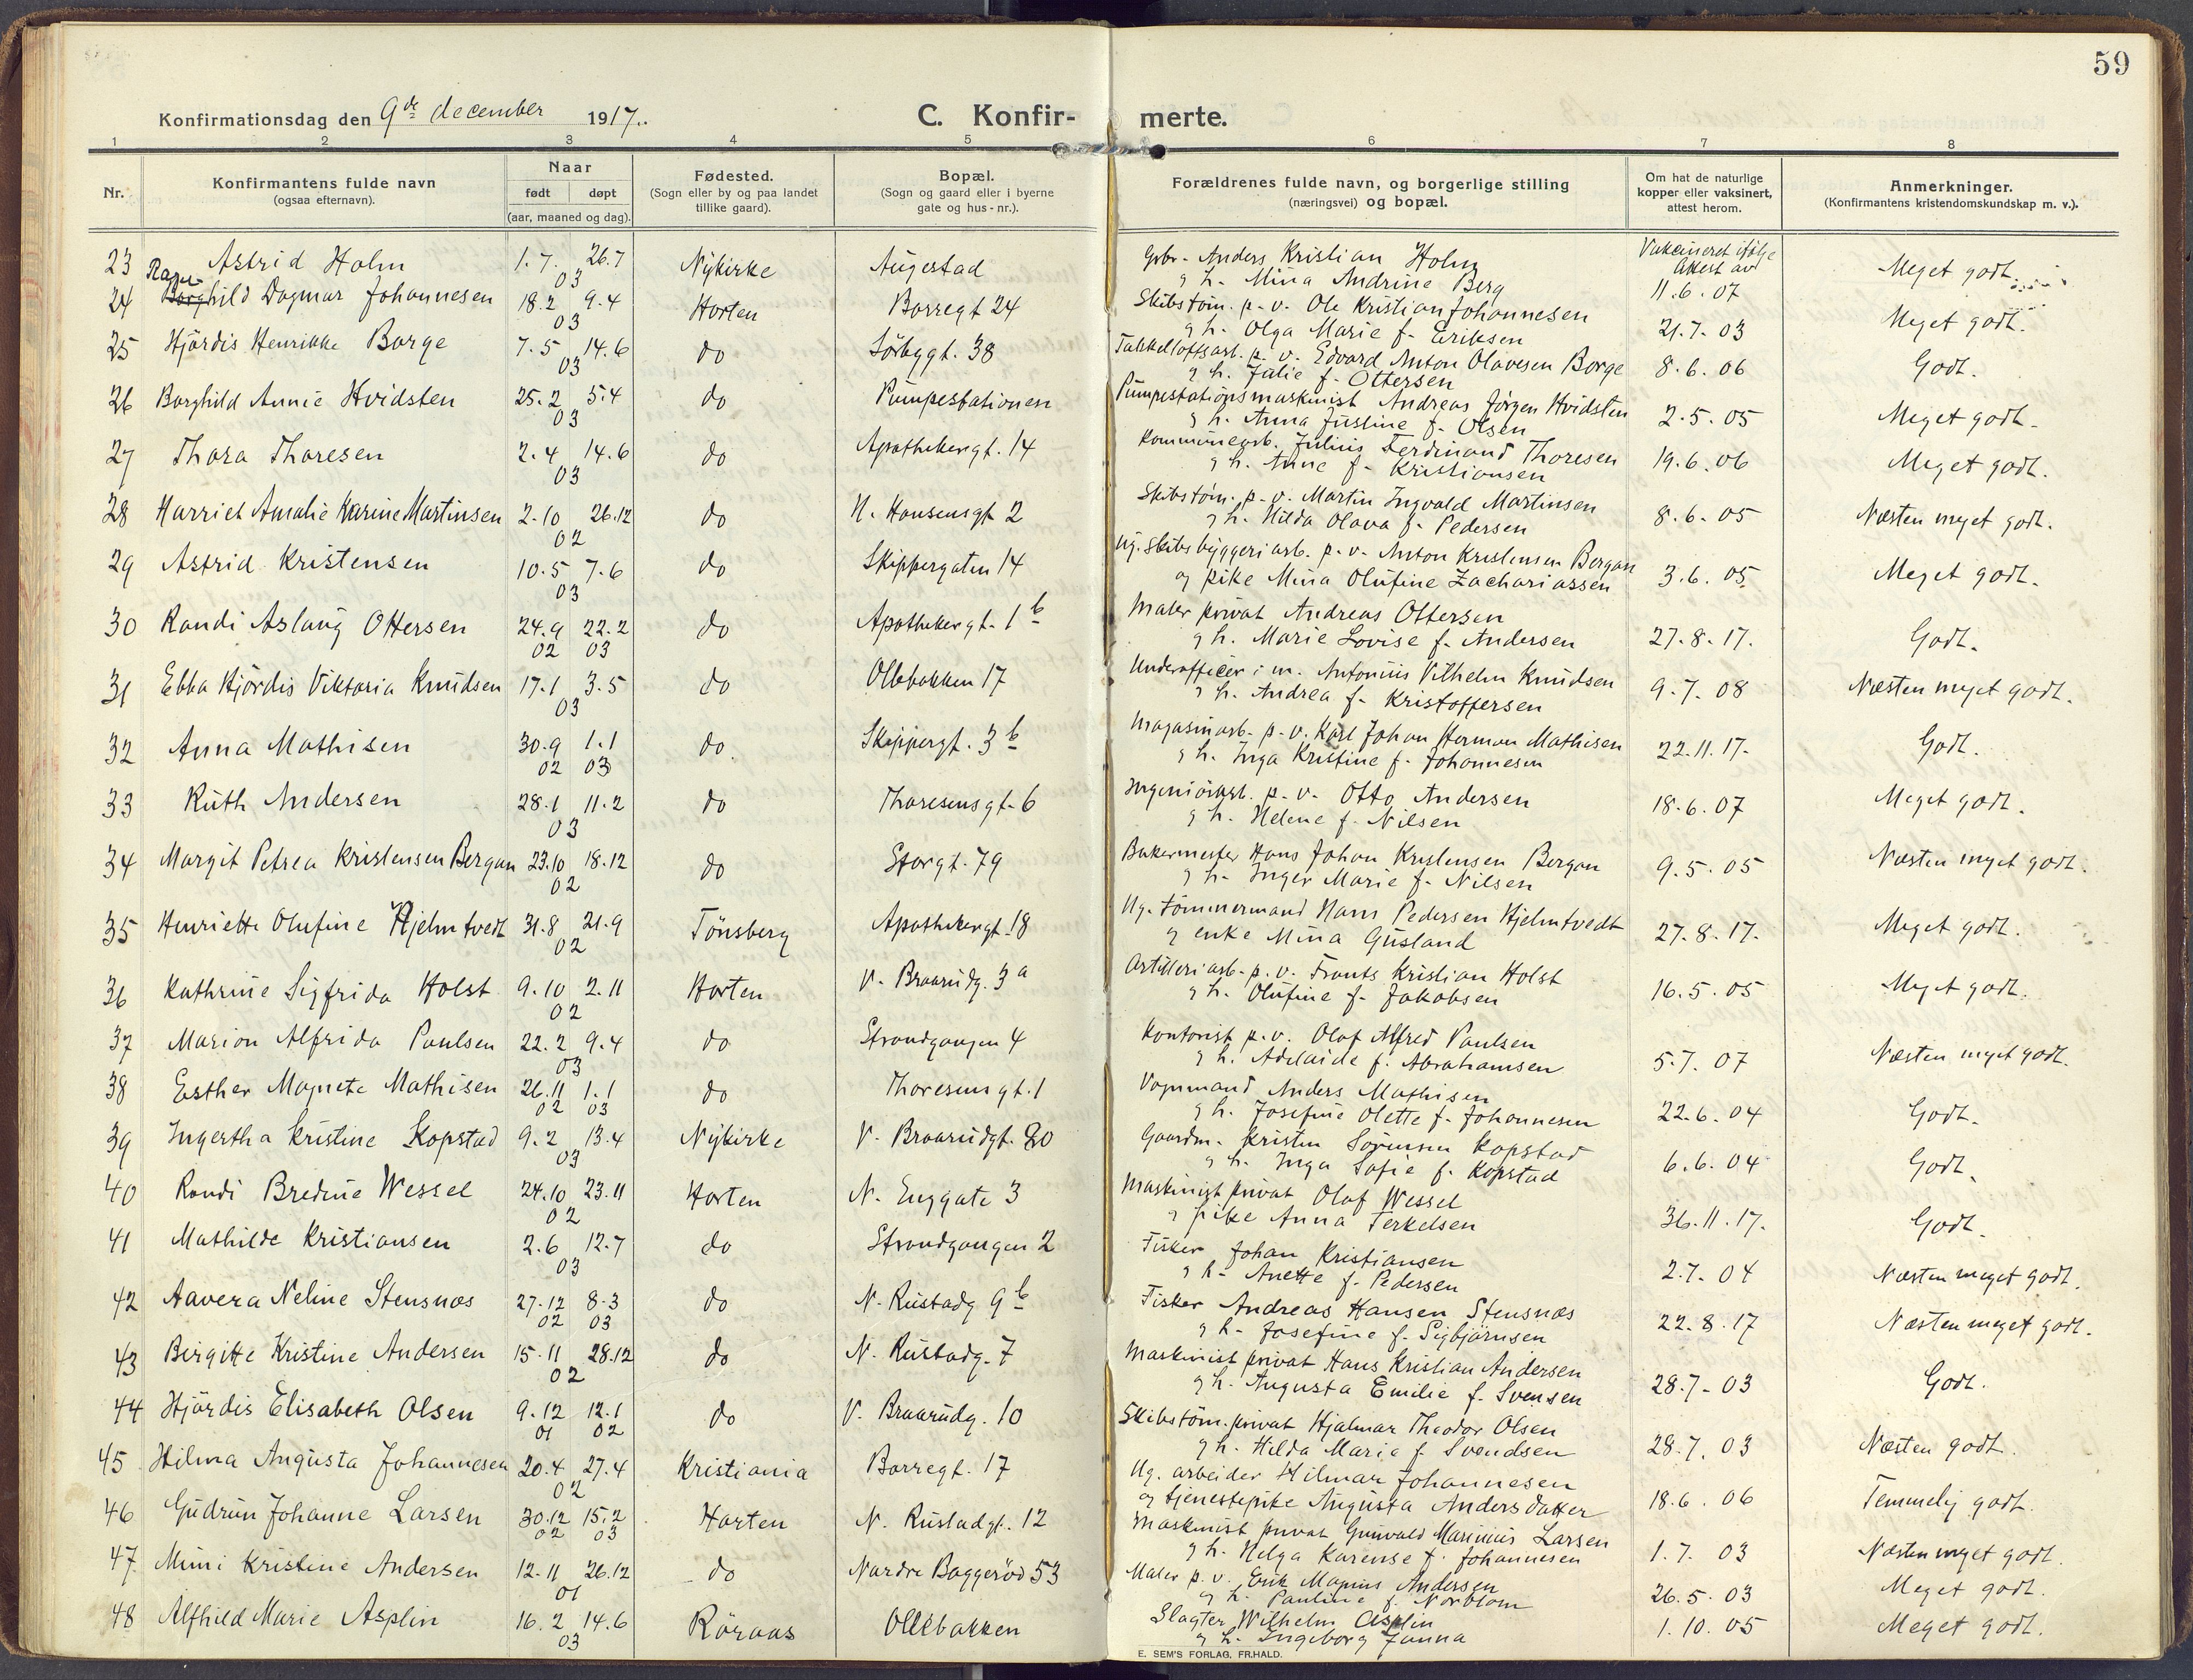 59
Konfirmationsdag den 9de december 1917.
C. Konfir- merte.
1 2 3 4 5 6 7 8
Nr.
Konfirmantens fulde navn
(ogsaa efternavn).
Naar
født døpt
(aar, maaned og dag).
Fødested.
(Sogn eller by og paa landet
tillike gaard).
Bopæl.
(Sogn og gaard eller i byerne
gate og hus-nr.).
Forældrenes fulde navn, og borgerlige stilling
(næringsvei) og bopæl.
Om hat de naturlige
kopper eller vaksinert,
attest herom.
Anmerkninger.
(Konfirmantens kristendomskundskap m. v.).
23 Astrid Holm 1.7. 26.7 03 Nykirke Augestad
Gbr. Anders Kristian Holm
g h. Mina Andrine Berg
Vakcineret ifølge
Attest av
11.6.07 Meget godt.
24 Ragnhild Dagmar Johannesen 18.2 9.4 03 Horten Borregt 24
Skibstøm. p. v. Ole Kristian Johannesen
g h. Olga Marie f. Eriksen
21.7.03 Meget godt.
25 Hjördis Henrikke Borge 7.5 14.6 03 do Sörbygt. 38
Takkelloftsarb. p. v. Edvard Anton Olavesen Borge
g h. Julie f. Ottersen
8.6.06 Godt.
26 Borghild Annie Hvidsten 25.2 5.4 03 do Pumpestationen
Pumpestationsmaskinist Andreas Jørgen Hvidsten
g h. Anna Justine f. Olsen
2.5.05 Meget godt.
27 Thora Thoresen 2.4 14.6 03 do Apothekergt. 14
Kommunearb. Julius Ferdinand Thoresen
g h. Anne f. Kristiansen
19.6.06 Meget godt.
28 Harriet Amalie Karine Martinsen 2.10 26.12 02 do N. Hansensgt 2
Skibstöm. p. v. Martin Ingvald Martinsen
g h. Hilda Olava f. Pedersen
8.6.05 Næsten meget godt.
29 Astrid Kristensen 10.5 7.6 03 do Skippergaten 14
Ug. Skibsbyggeriarb. p. v. Anton Kristensen Bergan
og pike Mina Olufine Zachariassen
3.6.05 Meget godt.
30 Randi Aslaug Ottersen 24.9 22.2 02 03 do Apothekergt. 1b
Maler privat Andreas Ottersen
g h. Marie Lovise f. Andersen
27.8.17. Godt.
31 Ebba Hjördis Viktoria Knudsen 17.1 3.5 03 do Ollebakken 17
Underofficer i m. Antonius Vilhelm Knudsen
g h. Andrea f. Kristoffersen
9.7.08 Næsten meget godt.
32 Anna Mathisen 30.9 1.1 02 03 do. Skippergt. 3b
Magasinarb. p. v. Karl Johan Herman Mathisen
g h. Inga Kristine f. Johannesen
22.11.17. Godt.
33 Ruth Andersen 28.1 11.2 03 do Thoresensgt. 6
Ingeniörarb. p. v. Otto Andersen
g h. Helene f. Nilsen
18.6.07 Meget godt.
34 Margit Petrea Kristensen Bergan 23.10 18.12 02 do Storgt. 79
Bakermester Hans Johan Kristensen Bergan
g h. Inger Marie f. Nilsen
9.5.05 Næsten meget godt.
35 Henriette Olufine Hjelmtvedt 31.8 21.9 02 Tönsberg Apothekergt. 18
Ug. Tömmermand Hans Pedersen Hjelmtvedt
g enke Mina Gusland
27.8.17. Meget godt.
36 Kathrine Sigfrida Holst 9.10 2.11 02 Horten V. Braarudg. 3a
Artilleriarb. p. v. Frants Kristian Holst
g h. Olufine f. Jakobsen
16.5.05 Meget godt.
37 Marion Alfrida Paulsen 22.2 9.4 03 do Strandgangen 4
Kontorist p. v. Olaf Alfred Paulsen
g h. Adelaide f. Abrahamsen
5.7.07 Næsten meget godt.
38 Esther Magnete Mathisen 26.11 1.1 02 03 do Thoresensgt. 1
Vognmand Anders Mathisen
g h. Josefine Olette f. Johannesen
22.6.04 Godt.
39 Ingertha Kristine Kopstad 9.2 13.4 03 Nykirke V. Braarudgt. 20
Gaardm. Kristen Sörensen Kopstad
g h. Inga Sofie f. Kopstad
6.6.04 Godt.
40 Randi Bredine Wessel 24.10 23.11 02 Horten N. Enggate 3
Maskinist privat Olaf Wessel
g pike Anna Terkelsen
36.11.17. Godt.
41 Mathilde Kristiansen 2.6 12.7 03 do Strandgangen 2
Fisker Johan Kristiansen
g h. Anette f. Pedersen
2.7.04 Næsten meget godt.
42 Aavera Neline Stensnæs 27.12 8.3 02 03 do N. Rustadg 9b
Fisker Andreas Hansen Stensnæs
g h. Josefine f. Sigbjörnsen
22.8.17 Næsten meget godt.
43 Birgitte Kristine Andersen 15.11 28.12 02 do N. Rustadg. 7
Maskinist privat Hans Kristian Andersen
g h. Augusta Emilie f. Svensen
28.7.03 Godt.
44 Hjördis Elisabeth Olsen 9.12 12.1 01 02 do V. Braarudg. 10
Skibstöm. privat Hjalmar Theodor Olsen
g h. Hilda Marie f. Svendsen
28.7.03 Næsten godt.
45 Hilma Augusta Johannesen 20.4 27.4 02 Kristiania Borregt. 17
Ug. arbeider Hilmar Johannesen
og tjenestepike Augusta Andersdatter
18.6.06 Temmelig godt.
46 Gudrun Johanne Larsen 30.12 15.2 02 03 Horten N. Rustadgt. 12
Maskinist privat Gunvald Marinius Larsen
g h. Helga Karense f. Johannesen
1.7.03 Næsten meget godt.
47 Mimi Kristine Andersen 12.11 26.12 01 do Nordre Baggeröd 53
Maler p. v. Erik Magnus Andersen
g h. Pauline f. Norblom
26.5.03 Meget godt.
48 Alfhild Marie Asplin 16.2 14.6 03 Röraas Ollebakken
Slagter Wilhelm Asplin
g h. Ingeborg Janna
1.10.05 Meget godt.
E. SEM'S FORLAG, FR.HALD.